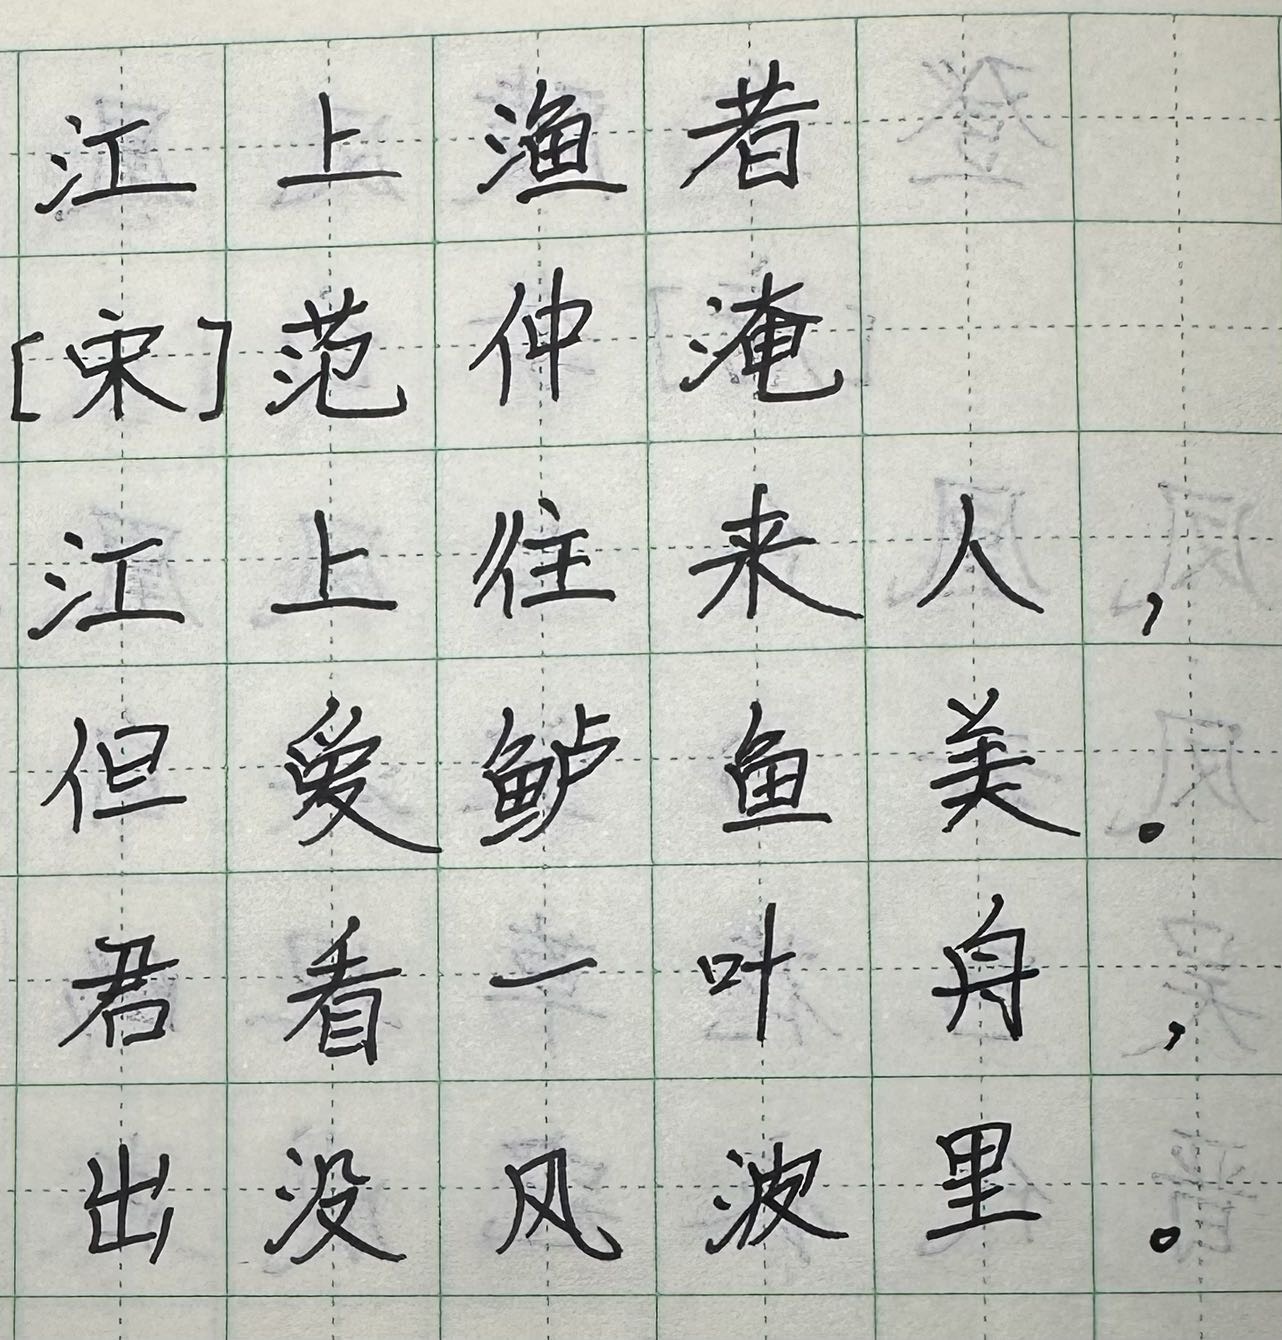 江上渔者
[宋]范仲淹
江上往来人，
但爱鲈鱼美。
君看一叶舟，
出没风波里。